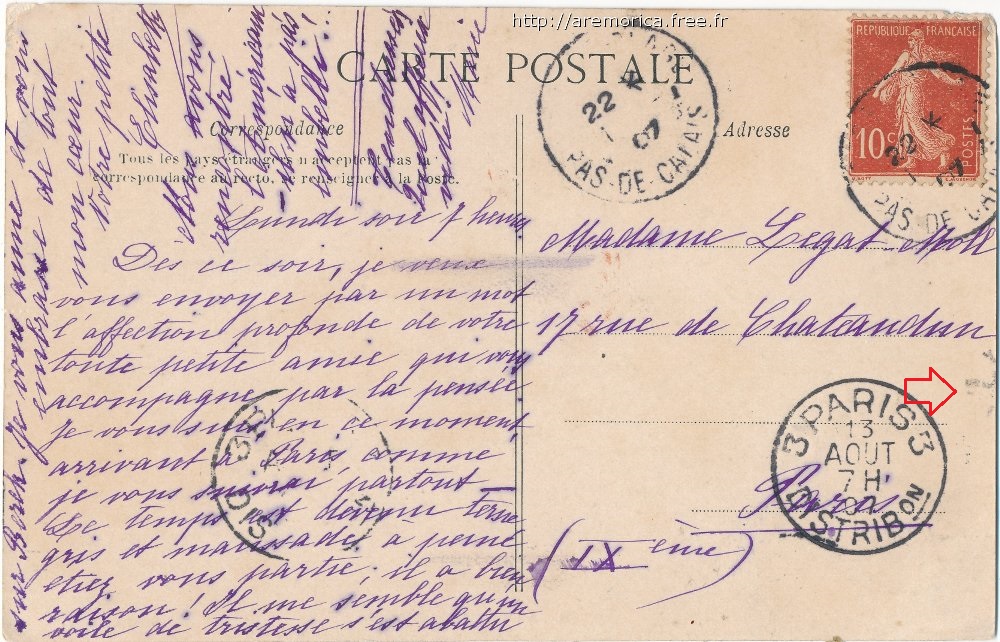 http://aremorica.free.fr
CARTE POSTALE
Correspondance
Tous les pays étrangers n'acceptent pas la
correspondance au recto, se renseigner à la Poste.
Adresse
REPUBLIQUE FRANÇAISE
10c
POSTES
22
07
PAS-DE-CALAIS
22
07
PAS-DE-CA
Lundi soir 7 heures
Dès ce soir, je veux
vous envoyer par un mot
l'affection profonde de votre
toute petite amie qui vous
accompagne par la pensée
Je vous suis en ce moment
arrivant à Paris comme
je vous suivrai partout
Le temps est devenu terne
gris et maussade à peine
etiez vous partie, il a bien
raison! Il me semble qu'un
voile de tristesse s'est abattu
sur Berck. Je vous aime et vous
embrasse de tout
mon cœur.
Votre petite
Elisabeth
avons
rencontré
l'américain
il n'a pas
embelli!
Madame Legat Moll
17 rue de Chateaudun
Paris
(IX eme)
3 PARIS 3
13
AOUT
7 H
07
DISTRIBON
3 P
DIS